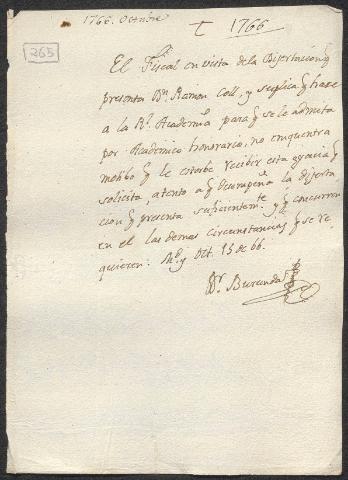 1766. Octubre
1766
265
El Fiscal en vista de la Disertacion q
presenta Dn. Ramon Coll, y suplica q hace
a la Rl. Academia para q se le admita
por Academico honorario, no encuentra
motibo q le estorbe recibir esta gracia q
solicita, atento a q desempeña la diserta
cion q presenta suficientemte. y q concurren
en el las demas circunstancias q se re
quieren. Oct. 15 de 66.
Dr. Burunda